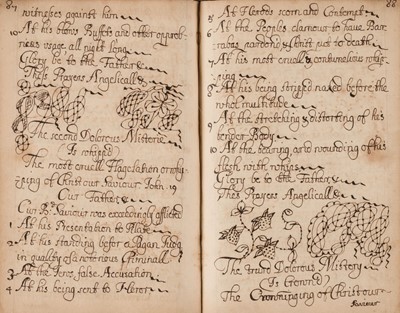 87
witnesses against him
10 At his blows Buffets and other opprob-
rious usage all night long
Glory be to the Father &
Thes Prayers Angelicall &
The second Dolorous Misterie
Is whiped
The most cruell Flagelation or whi-
ping of Christ our Saviour John 19
Our Father
Our B: Saviour was exceedingly afflicted
1 At his Presentation to Pilate
2 At his standing before a Pagan Judg
in quality of a notorious Criminall
3 At the Jews false Accusation
4 At his being sent to Herod
88
5 At Herods scorn and Contempt
6 At the Peoples clamour to have Bar-
rabas pardond & Christ put to death
7 At his most cruell & contumelious whip-
ping
8 At his being striped naked before the
whol multitude
9 At the stretching & distorting of his
tender Body
10 At the tearing and wounding of his
flesh with whips
Glory be to the Father
Thes Prayers Angelicall &
The third Dolorous Mistery
Is Crowned
The Crowninging of Christ our
Saviour